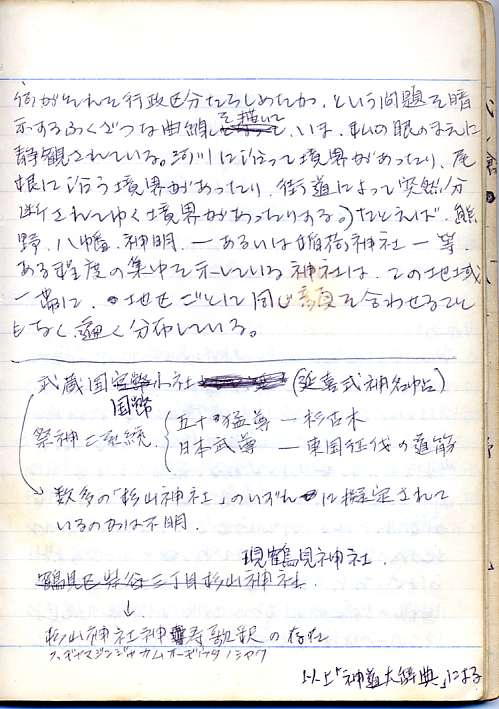 何がそれを行政区分たらしめたか、という問題を暗
示するふくざつな曲線を描いて、いま、私の眼のまえに
静観されている。河川に沿って境界があったり、尾
根に沿う境界があったり、街道によって突然分
断されてゆく境界があったりする。)たとえば、熊
野、八幡、神明、―あるいは稲荷神社―等、
ある程度の集中を示している神社は、この地域
一帯に、地せごとに同じ顔を合わせるでも
もなく、遍く分布している。
武蔵国 小社 (延喜式神名帖)
国幣
祭神二系統、
五十猛尊 ― 杉古木
日本武尊 ― 東国征伐の道筋
数多の「杉山神社」のいずれに推定されて
いるのかは不明。
現鶴見神社。
鶴見区 二丁目杉山神社
↓
杉山神社神寿歌釈の存在
スギヤマジンジャカムホーギウタノシャク
以上「神道大辞典」による